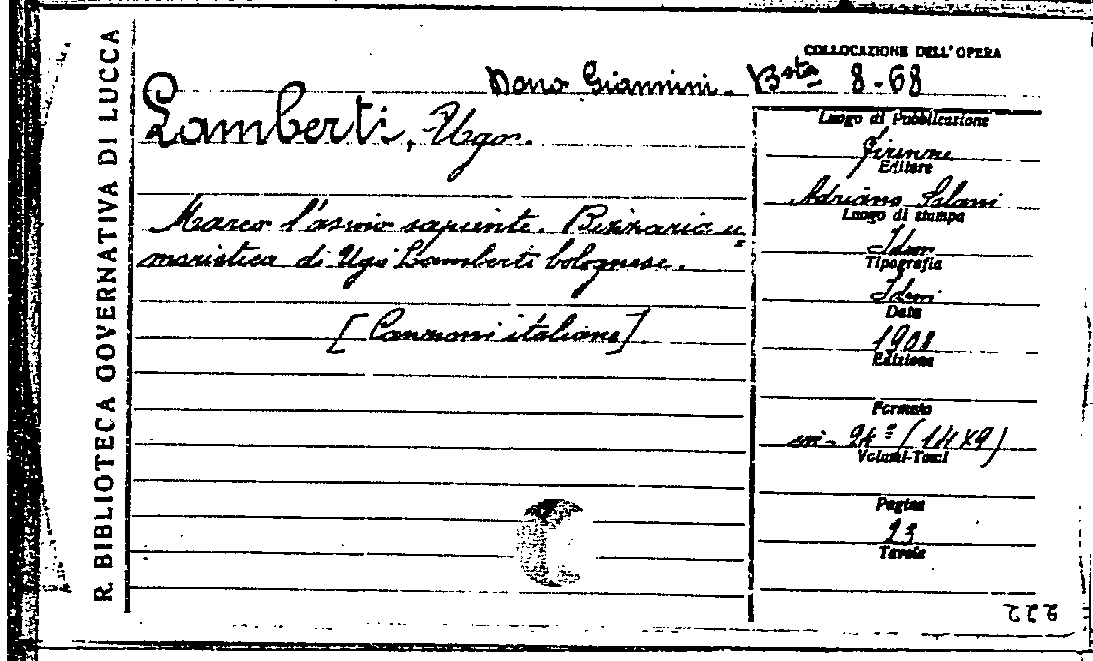 R. BIBLIOTECA GOVERNATIVA DI LUCCA
COLLOCAZIONE DELL'OPERA
Dono Giannini. Bsta 8-68
Lamberti, Ugo.
Marco l'asino sapiente. Bizzaria u=
moristica di Ugo Lamberti bolognese.
[Canzoni italiane]
Luogo di Pubblicazione
Firenze
Editore
Adriano Salani
Luogo di stampa
Idem
Tipografia
Idem
Data
1908
Edizione
Formato
in-24º (14x9)
Volumi-Tomi
Pagine
23
Tavole